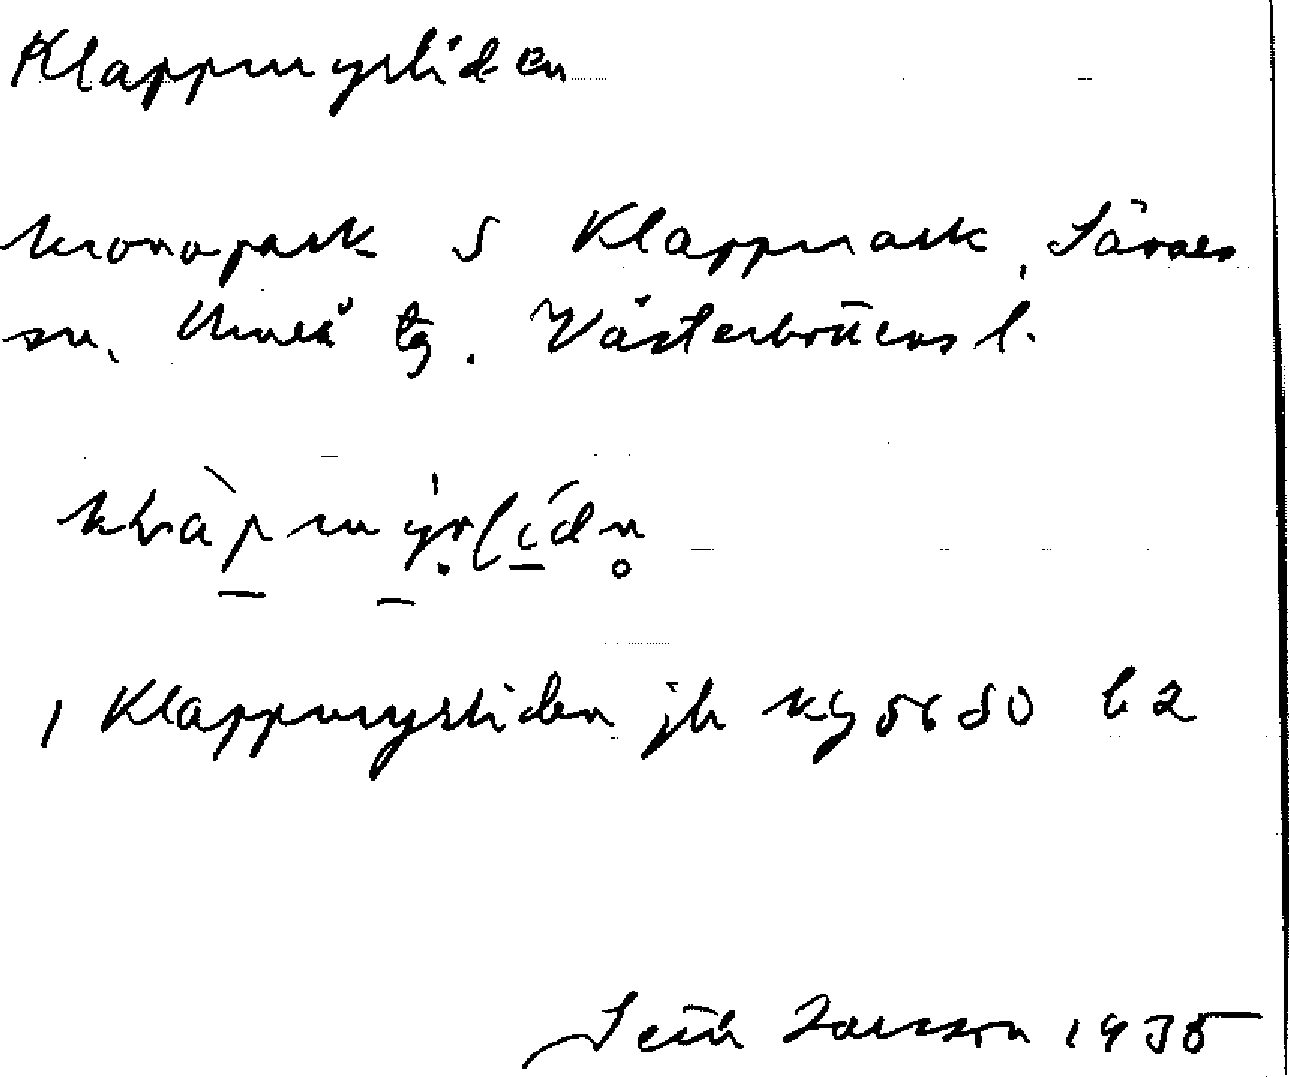 Klappmyrliden
kronopark S Klappmark, Sävars
sn. Umeå tg. Västerbottens l.
, Klappmyrliden jb kg 5680 b2
Seth Larsson 1935